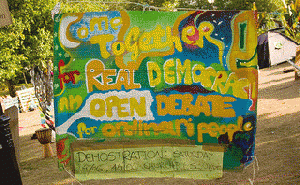 COME
TOGETHER
for REAL DEMOCRACY
AN OPEN DEBATE
for ordinary people
DEMOSTRATION SATURDAY